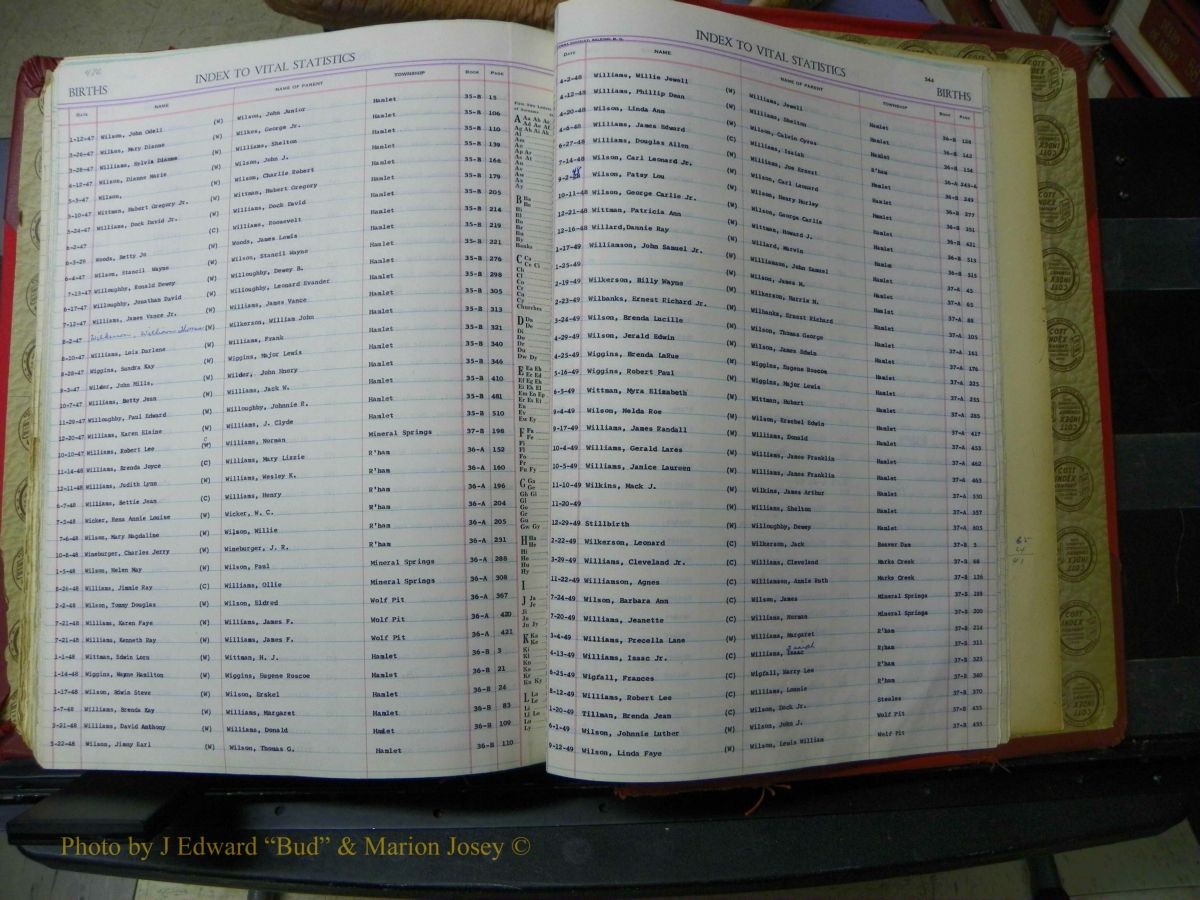 INDEX TO VITAL STATISTICS
BIRTHS
DATE NAME NAME OF PARENT TOWNSHIP BOOK PAGE
1-12-47 Wilson, John Odell (W) Wilson, John Junior Hamlet 35-B 15
3-26-47 Wilkes, Mary Dianne Wilkes, George Jr. Hamlet 35-B 106
3-28-47 Williams, Sylvia Dianne (W) Williams, Shelton Hamlet 35-B 110
4-12-47 Wilson, Dianne Marie (W) Wilson, John J. Hamlet 35-B 139
5-3-47 Wilson, (W) Wilson, Charlie Robert Hamlet 35-B 166
5-10-47 Wittman, Hubert Gregory Jr. (W) Wittman, Hubert Gregory Hamlet 35-B 179
5-24-47 Williams, Dock David Jr. (W) Williams, Dock David Hamlet 35-B 205
6-2-47 (C) Williams, Roosevelt Hamlet 35-B 214
Woods, Betty Jo (W) Woods, James Lewis Hamlet 35-B 219
6-4-47 Wilson, Stancil Wayne (W) Wilson, Stancil Wayne Hamlet 35-B 221
7-13-47 Willoughby, Ronald Dewey (W) Willoughby, Dewey B. Hamlet 35-B 276
6-17-47 Willoughby, Jonathan David (W) Willoughby, Leonard Evander Hamlet 35-B 298
7-12-47 Williams, James Vance Jr. (W) Williams, James Vance Hamlet 35-B 305
8-2-47 Wilkerson, William Thomas (W) Wilkerson, William John Hamlet 35-B 313
8-20-47 Williams, Lois Darlene (W) Williams, Frank Hamlet 35-B 321
8-28-47 Wiggins, Sandra Kay (W) Wiggins, Major Lewis Hamlet 35-B 340
Wilder, John Mills, (W) Wilder, John Hnery Hamlet 35-B 346
10-7-47 Williams, Betty Jean (W) Williams, Jack W. Hamlet 35-B 410
11-20-47 Willoughby, Paul Edward (W) Willoughby, Johnnie E. Hamlet 35-B 481
12-20-47 Williams, Karen Elaine (W) Williams, J. Clyde Hamlet 35-B 510
10-10-47 Williams, Robert Lee C (W) Williams, Norman Mineral Springs 37-B 198
11-14-48 Williams, Brenda Joyce (C) Williams, Mary Lizzie R'ham 36-A 152
12-11-48 Williams, Judith Lynn (W) Williams, Wesley K. R'ham 36-A 160
6-7-48 Williams, Bettie Jean (C) Williams, Henry R'ham 36-A 196
7-3-48 Wicker, Rena Annie Louise (W) Wicker, W. C. R'ham 36-A 204
7-6-48 Wilson, Mary Magdaline (W) Wilson, Willie R'ham 36-A 205
10-8-48 Wineburger, Charles Jerry (W) Wineburger, J. R. R'ham 36-A 231
1-5-48 Wilson, Helen May (W) Wilson, Paul Mineral Springs 36-A 288
5-26-48 Williams, Jimmie Ray (C) Williams, Ollie Mineral Springs 36-A 308
2-2-48 Wilson, Tommy Douglas (W) Wilson, Eldred Wolf Pit 36-A 367
7-21-48 Williams, Karen Faye (W) Williams, James F. Wolf Pit 36-A 420
7-21-48 Williams, Kenneth Ray (W) Williams, James F. Wolf Pit 36-A 421
1-1-48 Wittman, Edwin Loen (W) Wittman, H. J. Hamlet 36-B 3
1-14-48 Wiggins, Wayne Hamilton (W) Wiggins, Eugene Roscoe Hamlet 36-B 21
1-17-48 Wilson, Edwin Steve (W) Wilson, Erskel Hamlet 36-B 24
3-7-48 Williams, Brenda Kay (W) Williams, Margaret Hamlet 36-B 83
3-21-48 Williams, David Anthony (W) Williams, Donald Hamlet 36-B 109
3-22-48 Wilson, Jimmy Earl (W) Wilson, Thomas G. Hamlet 36-B 110
INDEX TO VITAL STATISTICS
344
BIRTHS
DATE NAME NAME OF PARENT TOWNSHIP BOOK PAGE
4-2-48 Williams, Willie Jewell (W) Williams, Jewell Hamlet 36-B 128
4-12-48 Williams, Phillip Dean (W) Williams, Shelton Hamlet 36-B 142
4-20-48 Wilson, Linda Ann (W) Wilson, Calvin Cyrus Hamlet 36-B 154
4-6-48 Williams, James Edward (C) Williams, Isaiah R'ham 36-A
6-27-48 Williams, Douglas Allen (W) Williams, Joe Ernest Hamlet
7-14-48 Wilson, Carl Leonard Jr. (W) Wilson, Carl Leonard Hamlet
Wilson, Patsy Lou (W) Wilson, Henry Hurley Hamlet
10-11-48 Wilson, George Carlie Jr. (W) Wilson, George Carlie Hamlet
12-21-48 Wittman, Patricia Ann (W) Wittman, Howard J. Hamlet
12-16-48 Willard,Dannie Ray (W) Willard, Marvin Hamlet
1-17-49 Williamson, John Samuel Jr. (W) Williamson, John Samuel Hamlet 37-A 45
1-25-49 (W) Wilson, James M. Hamlet 37-A 65
2-19-49 Wilkerson, Billy Wayne (W) Wilkerson, Harris M. Hamlet 37-A 88
2-23-49 Wilbanks, Ernest Richard Jr. (W) Wilbanks, Ernest Richard Hamlet 37-A 105
3-24-49 Wilson, Brenda Lucille (W) Wilson, Thomas George Hamlet 37-A 161
4-29-49 Wilson, Jerald Edwin (W) Wilson, James Edwin Hamlet 37-A 176
4-25-49 Wiggins, Brenda LaRue (W) Wiggins, Eugene Roscoe Hamlet 37-A 225
5-16-49 Wiggins, Robert Paul (W) Wiggins, Major Lewis Hamlet 37-A 255
6-5-49 Wittman, Myra Elizabeth (W) Wittman, Hubert Hamlet 37-A 285
9-4-49 Wilson, Nelda Roe (W) Wilson, Erschel Edwin Hamlet 37-A 417
9-17-49 Williams, James Randall (W) Williams, Donald Hamlet 37-A 462
10-4-49 Williams, Gerald Lares (W) Williams, James Franklin Hamlet 37-A 463
10-5-49 Williams, Janice Laureen (W) Williams, James Franklin Hamlet 37-A 530
11-10-49 Wilkins, Mack J. (W) Wilkins, James Arthur Hamlet 37-A 557
11-20-49 (W) Williams, Shelton Hamlet 37-A 603
12-29-49 Stillbirth (W) Willoughby, Dewey Hamlet 37-B 3
2-22-49 Wilkerson, Leonard (C) Wilkerson, Jack Beaver Dam 37-B 68
3-29-49 Williams, Cleveland Jr. (C) Williams, Cleveland Marks Creek 37-B 136
11-22-49 Williamson, Agnes (C) Williamson, Annie Ruth Marks Creek 37-B 188
7-24-49 Wilson, Barbara Ann (C) Wilson, James Mineral Springs 37-B 200
7-20-49 Williams, Jeanette (C) Williams, Norman Mineral Springs 37-B 214
3-4-49 Williams, Precella Lane (W) Williams, Margaret R'ham 37-B 311
4-13-49 Williams, Isaac Jr. (C) Williams, Isaac R'ham 37-B 325
6-21-49 Wigfall, Frances (C) Wigfall, Harry Lee R'ham 37-B 340
8-12-49 Williams, Robert Lee (C) Williams, Lonnie R'ham 37-B 370
1-20-49 Tillman, Brenda Jean (C) Wilson, Dock Jr. Steeles 37-B 435
6-1-49 Wilson, Johnnie Luther (W) Wilson, John J. Wolf Pit 37-B 455
9-12-49 Wilson, Linda Faye (W) Wilson, Louis William Wolf Pit
Photo by J Edward “Bud” & Marion Josey ©